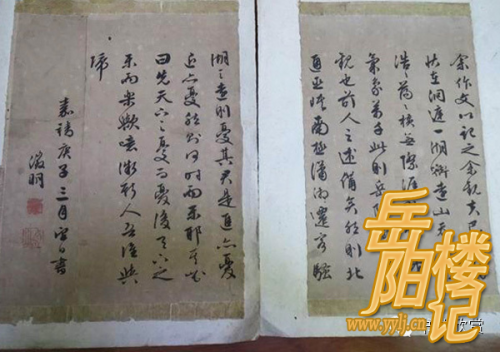 余作文以記之余觀夫巴
狀在洞庭一湖銜遠山吞
浩浩蕩蕩橫無際涯
氣象萬千此則岳陽
觀也前人之述備矣然則北
通巫峽南極瀟湘遷客騷
湖之遠則憂其君是進亦憂
退亦憂然則何時而樂耶其必
曰先天下之憂而憂後天下之
樂而樂歟噫微斯人吾誰與
歸
嘉靖庚子三月望日書
徵明
岳阳
楼记
www.yylj.cn